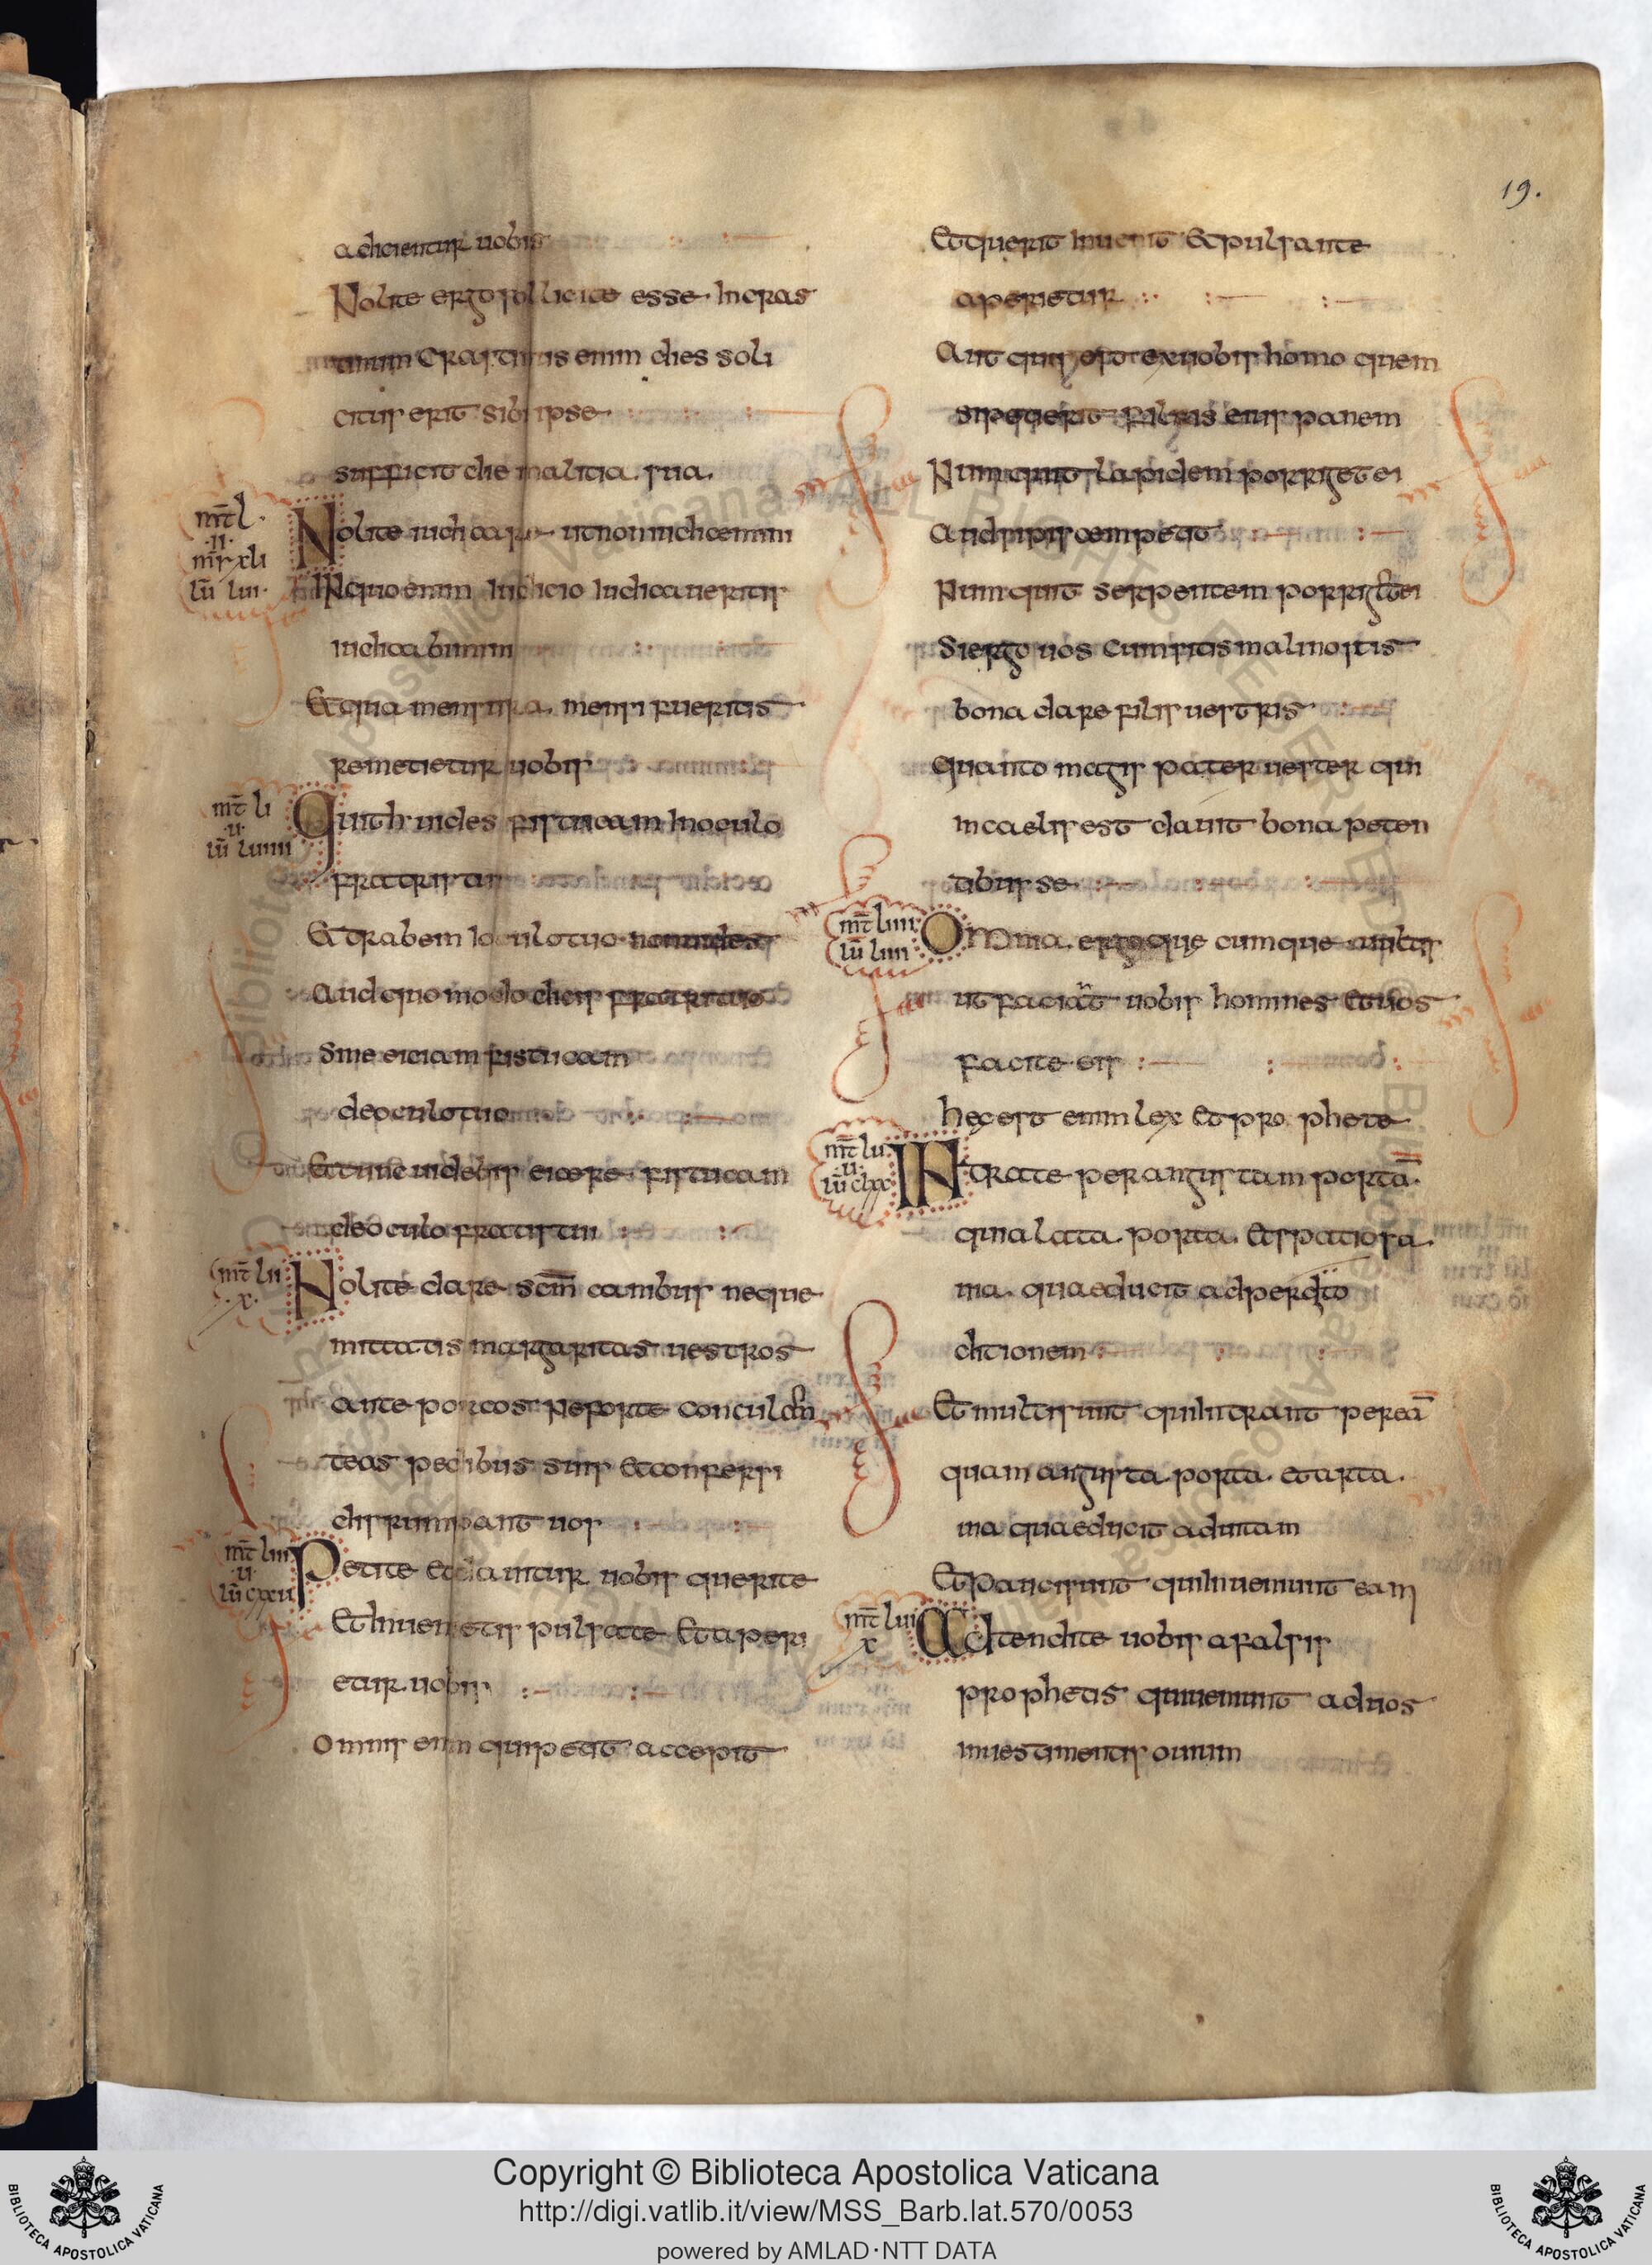 19.
adicientur uobis
Nolite ergo sollicite esse Incras
tinum Crastinus enim dies soli
citus erit sibi ipse
sufficit die malitia sua
mt̄ l
ii
mr̄ xli
lū lui
Nolite iudicare ut non iudicemini
INquo enim Iudicio Iudicaueritis
iudicabimini
Et qua mensura mensi fueritis
remetietur uobis
mt̄ li
u
lū luiii
Quith uides fistucam Inoculo
fratris tui
Et trabem In oculo tuo non uides
Aud quo modo dicis fratri tuo
sine eiciam fistucam
de oculo tuo
Et tunc uidebis eicere fistucam
de oculo fratis tui
mt̄ lii
x
Nolite dare scm̄ canibus neque
mittatis margaritas uestros
ante porcos Neforte concul
teas pedibus suis et conuersi
disrumpant uos
mt̄ liii
u
lū cxxu
Petite et dauitur uobis querite
Et Inuenietis pulsate Et aperi
etur uobis
Omnis enim qui petit accepit
Et querit Inuenit Et pulsante
aperietur
Aut quis est ex uobis homo quem
si petierit filius eius panem
Numquit lapidem porriget ei
Aud pipiscem petit
Numquit serpentem porriget ei
Si ergo uos cum sitis mali nostis
bona dare filis uestris
quanto magis pater uester qui
in caelis est dauit bona peten
tibus se
mt̄ liiii
lū liiii
Omnia ergo quę cumque uultis
ut faciat uobis homines Et uos
facite eis
hęc est enim lex Et pro phete
mt̄ lu
u
lū clxx
INtrate per angustam portā
quia lata porta Et spatiosa
uia quae ducit ad perdito
ditionem
Et multi sunt qui Intrant per eā
quam angusta porta et arta
uia quae ducit ad uitam
Et pauci sunt qui Inueniunt eam
mt̄ lui
x
Adtendite uobis a falsis
prophetis qui ueniunt ad uos
in uestimentis ouium
Copyright © Biblioteca Apostolica Vaticana
http://digi.vatlib.it/view/MSS_Barb.lat.570/0053
powered by AMLAD·NTT DATA
BIBLIOTECA APOSTOLICA VATICANA
BIBLIOTECA APOSTOLICA VATICANA